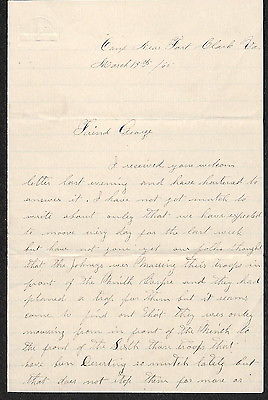 Camp Near Fort Clark Va
March 15th /65
Friend George
I received your welcom
letter last evening and have started to
answer it. I have not got mutch to
write about onley that we have expected
to moove every day for the last week
but have not gone yet our folks thought
that the Johnys wer Massing their troops in
front of the Ninth Corps and they had
planned a trap for them but it seems
come to find out that they wer only
mooving from in front of the Ninth to
the front of the Sixth their troops that
have ben Deserting so mutch lately but
that does not stop them far more or